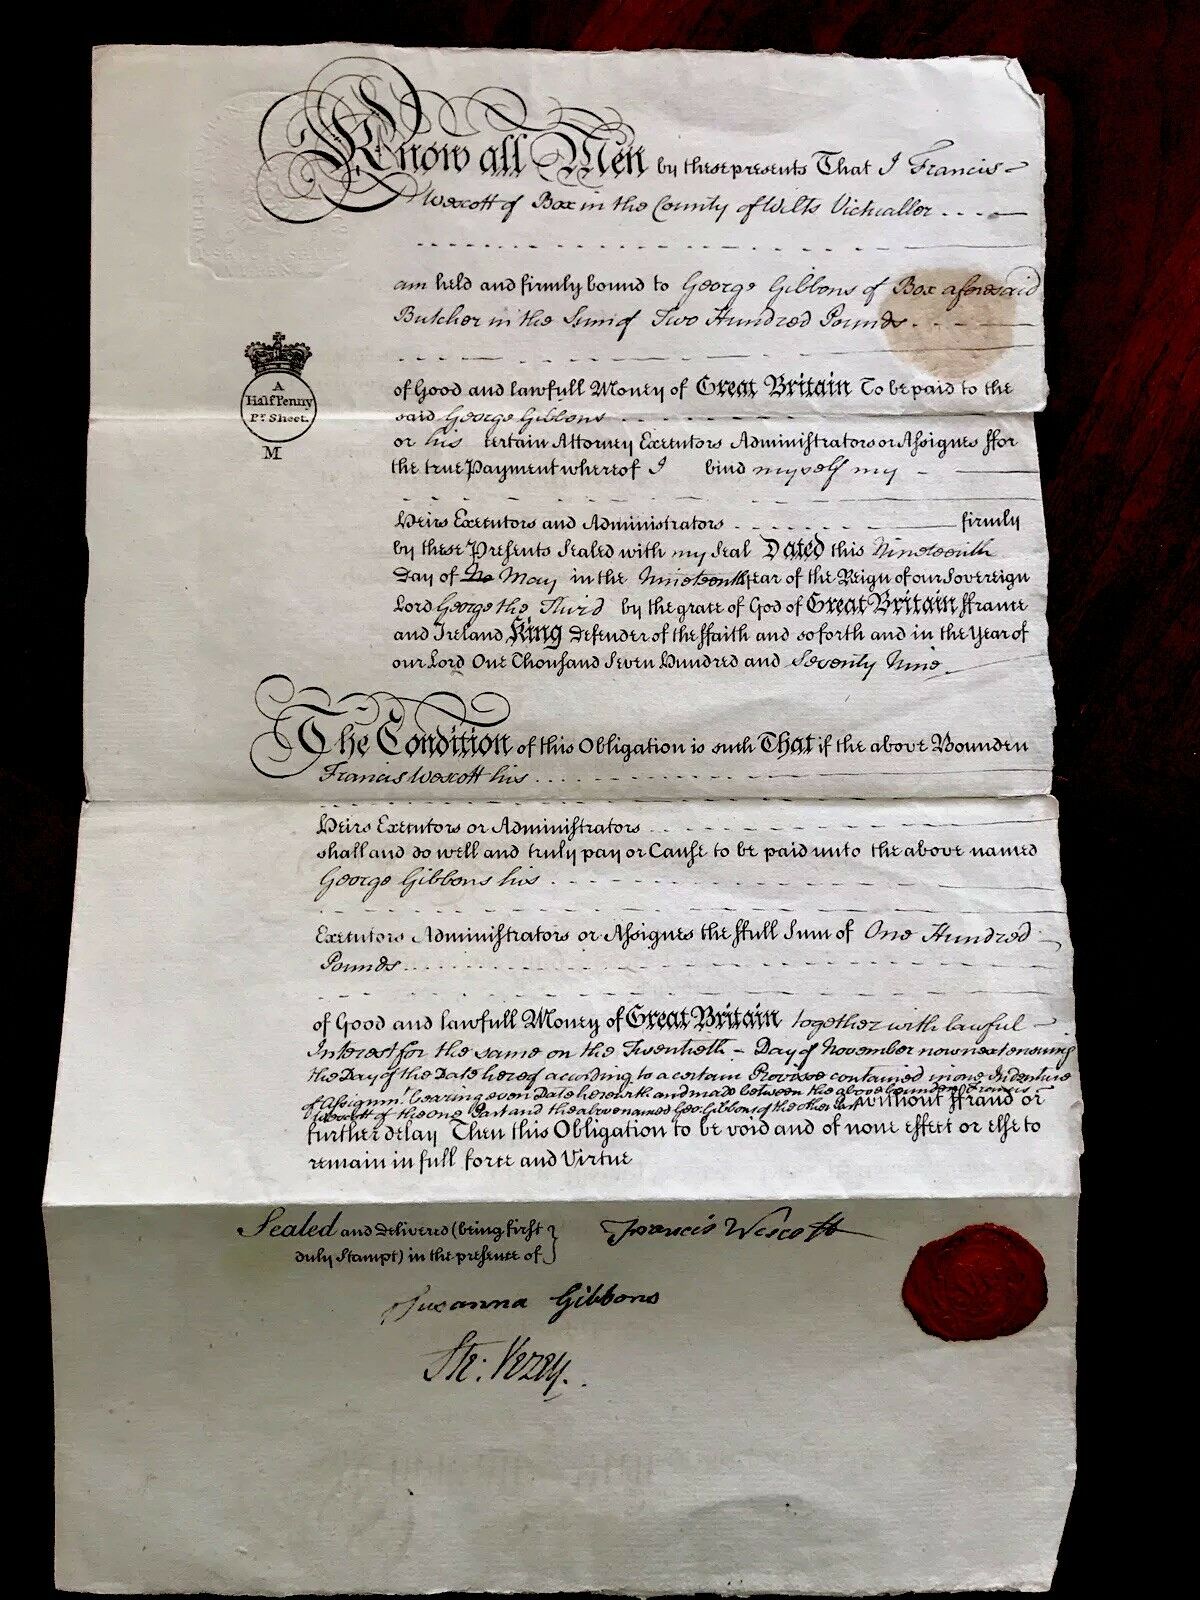 Know all Men by these presents That I Francis
Wescott of Box in the County of Wilts Victualler
am held and firmly bound to George Gibbons of Box aforesaid
Butcher in the Sum of Two Hundred Pounds
of Good and lawfull Money of Great Britain To be paid to the
said George Gibbons
or his certain Attorney Executors Administrators or Assignes ffor
the true Payment whereof I bind myself my
Heirs Executors and Administrators firmly
by these Presents Sealed with my Seal Dated this Nineteenth
Day of May in the Nineteenth Year of the Reign of our Sovereign
Lord George the Third by the grace of God of Great Britain ffrance
and Ireland King Defender of the ffaith and so forth and in the Year of
our Lord One Thousand Seven Hundred and Seventy Nine
A
Half Penny
Pr. Sheet.
M
The Condition of this Obligation is such That if the above Bounden
Francis Wescott his
Heirs Executors or Administrators
shall and do well and truly pay or Cause to be paid unto the above named
George Gibbons his
Executors Administrators or Assignes the ffull Sum of One Hundred
Pounds
of Good and lawfull Money of Great Britain together with lawful
Interest for the same on the Twentieth Day of November now next ensuing
the Day of the Date hereof according to a certain Provisoe contained in one Indenture
of Assignmt. bearing even Date herewith and made between the above bounden Francis
Wescott of the one Part and the above named Geo: Gibbons of the other Part without ffraud or
further delay Then this Obligation to be void and of none effect or else to
remain in full force and Virtue
Sealed and delivered (being first
duly Stampt) in the presence of
Francis Wescott
Susanna Gibbons
Ste: Vezey.